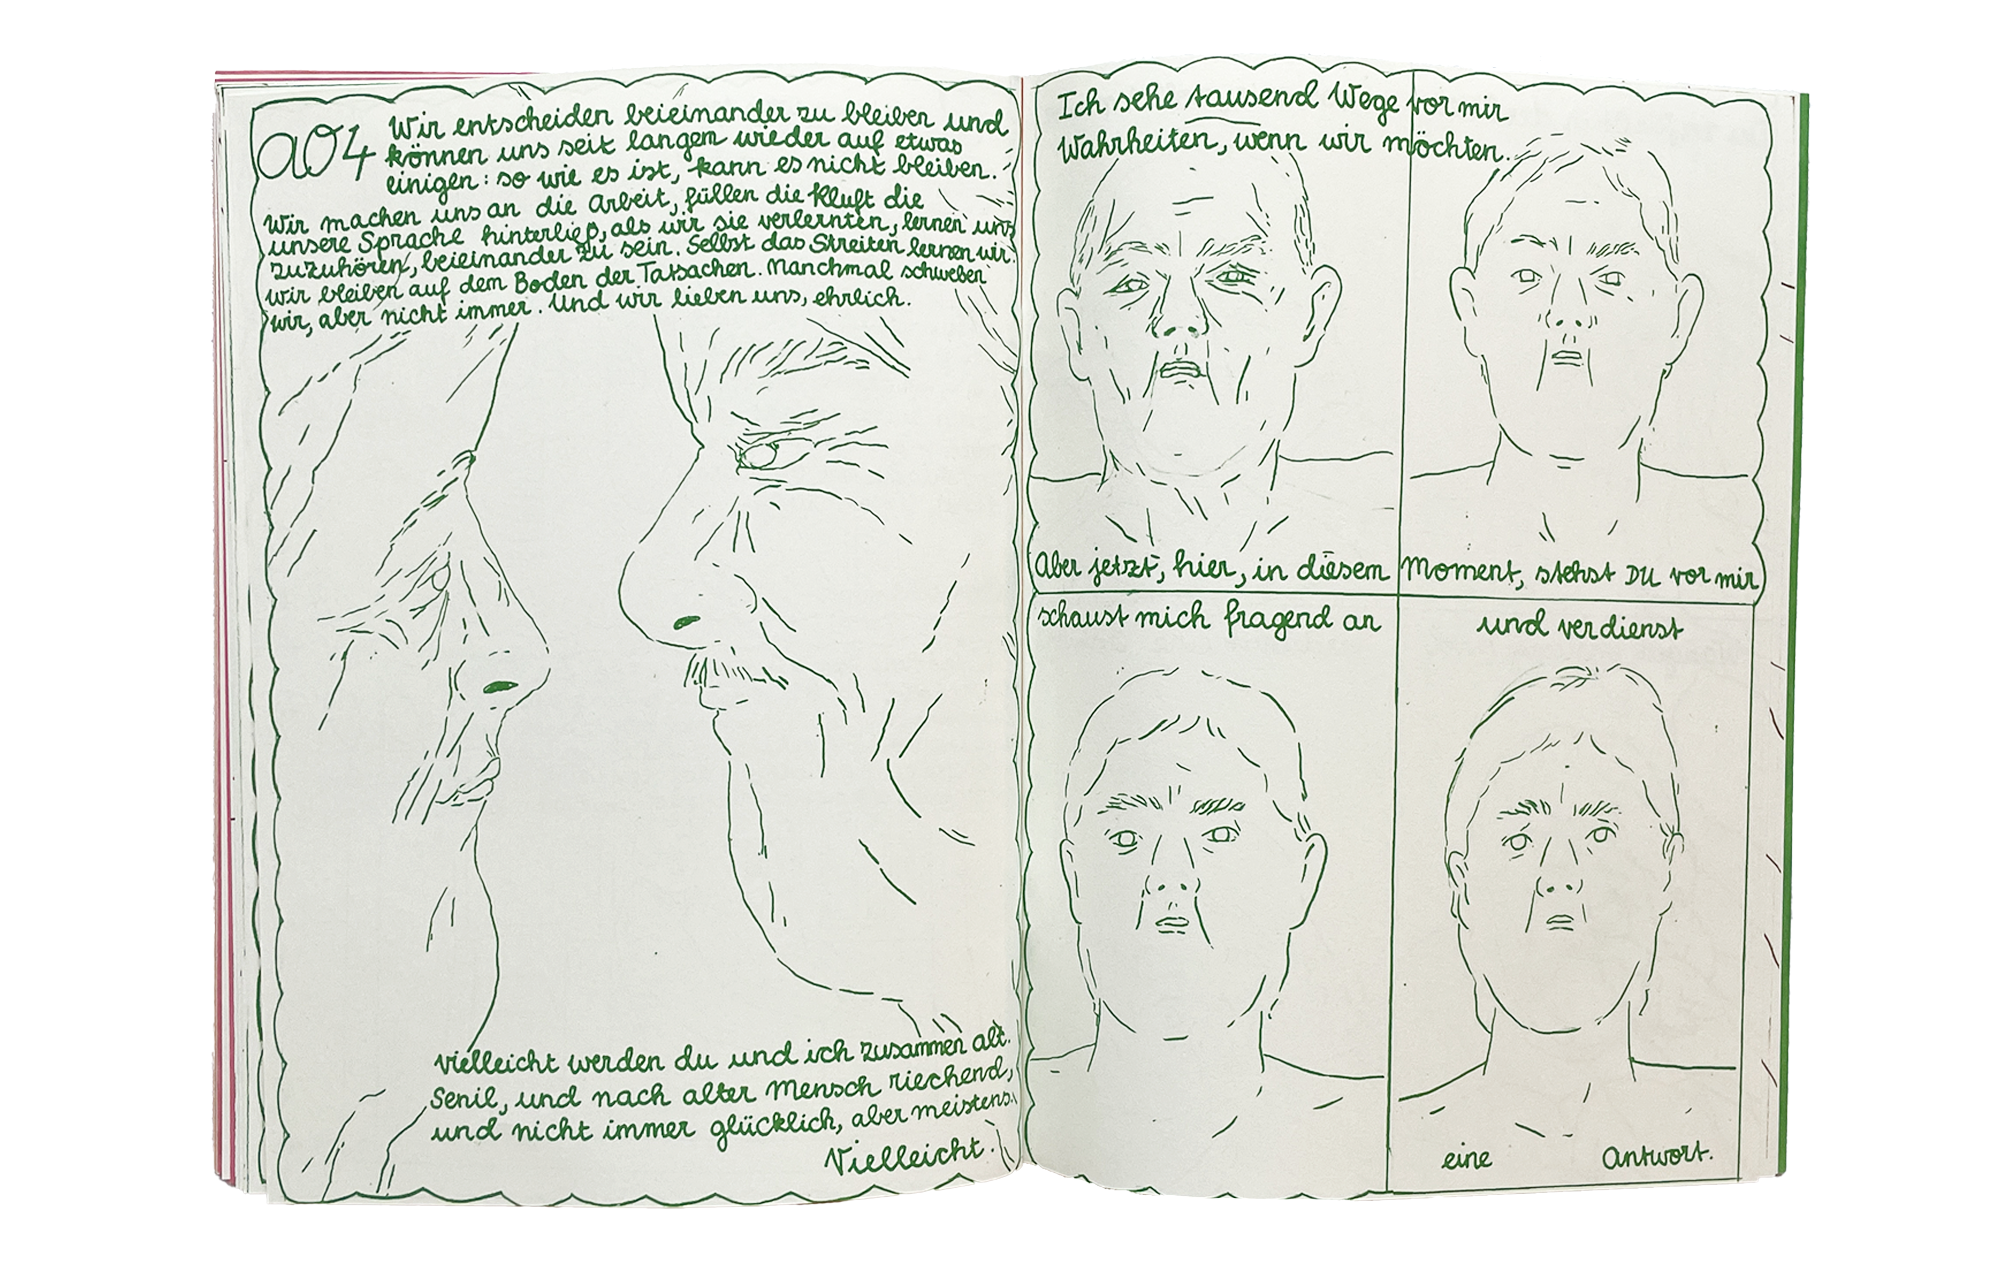 a04
Wir entscheiden beieinander zu bleiben und
können uns seit langem wieder auf etwas
einigen: so wie es ist, kann es nicht bleiben.
Wir machen uns an die Arbeit, füllen die Kluft die
unsere Sprache hinterließ, als wir sie verlernten, lernen uns
zuzuhören, beieinander zu sein. Selbst das Streiten lernen wir.
Wir bleiben auf dem Boden der Tatsachen. Manchmal schweben
wir, aber nicht immer. Und wir lieben uns, ehrlich.
vielleicht werden du und ich zusammen alt.
Senil, und nach alter Mensch riechend,
und nicht immer glücklich, aber meistens.
Vielleicht.
Ich sehe tausend Wege vor mir
Wahrheiten, wenn wir möchten.
Aber jetzt, hier, in diesem Moment, stehst DU vor mir
schaust mich fragend an
und verdienst
eine Antwort.